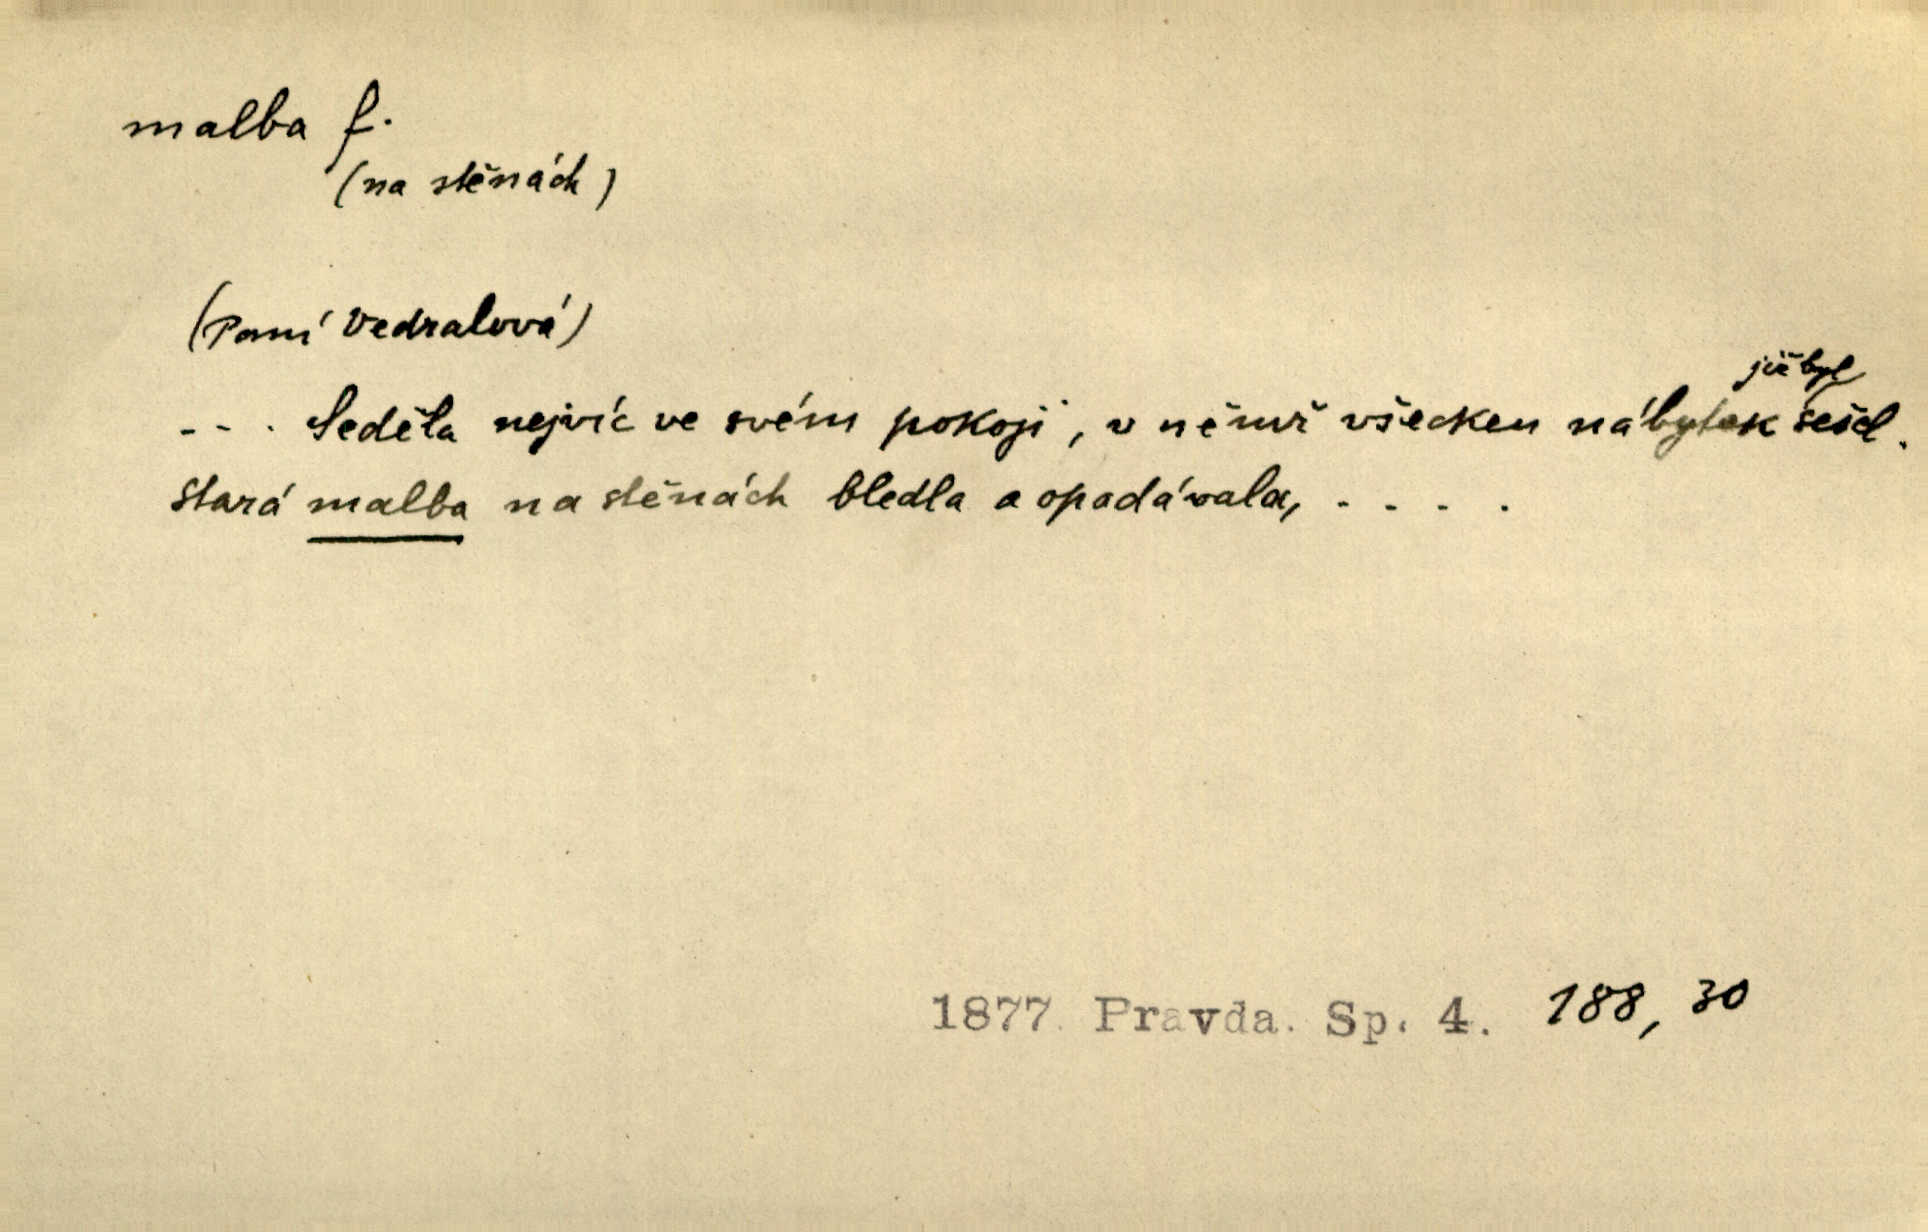 malba f.
(na stěnách)
(Paní Vedralová)
--. Seděla nejvíc ve svém pokoji, v němž všecken nábytek již byl sešel.
Stará malba na stěnách bledla a opadávala, . . . .
1877. Pravda. Sp. 4. 188, 30